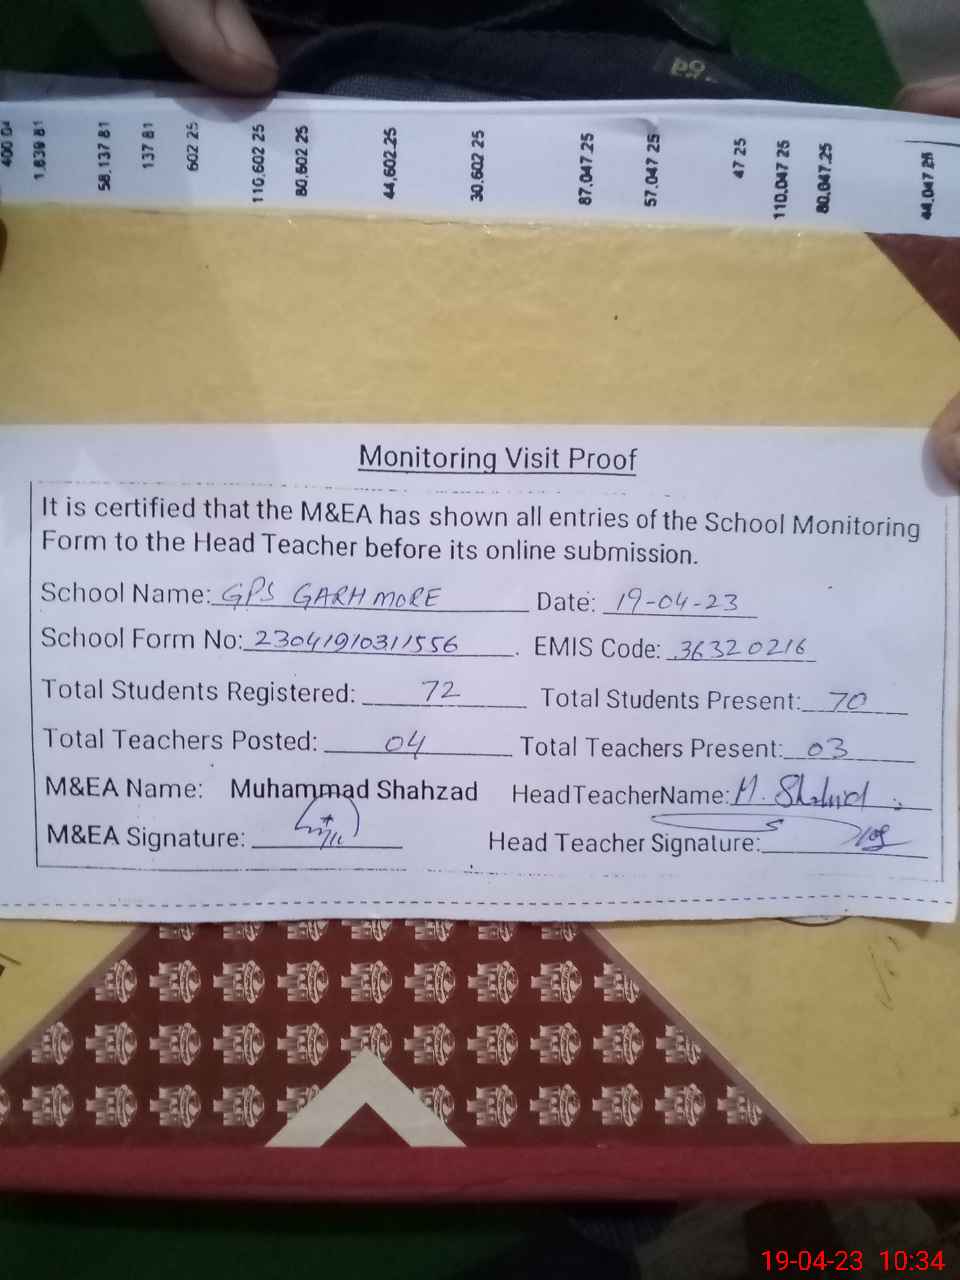 1,639 81
58,137 81
137 81
602 25
110,602 25
80,602 25
44,602.25
30,602 25
87,047.25
57,047 25
47 25
110,047 25
80,047.25
44,047 25
Monitoring Visit Proof
It is certified that the M&EA has shown all entries of the School Monitoring
Form to the Head Teacher before its online submission.
School Name: GPS GARH MORE Date: 19-04-23
School Form No: 23041910311556 . EMIS Code: 36320216
Total Students Registered: 72 Total Students Present: 70
Total Teachers Posted: 04 Total Teachers Present: 03
M&EA Name: Muhammad Shahzad Head Teacher Name: M.
M&EA Signature: Head Teacher Signature:
19-04-23 10:34